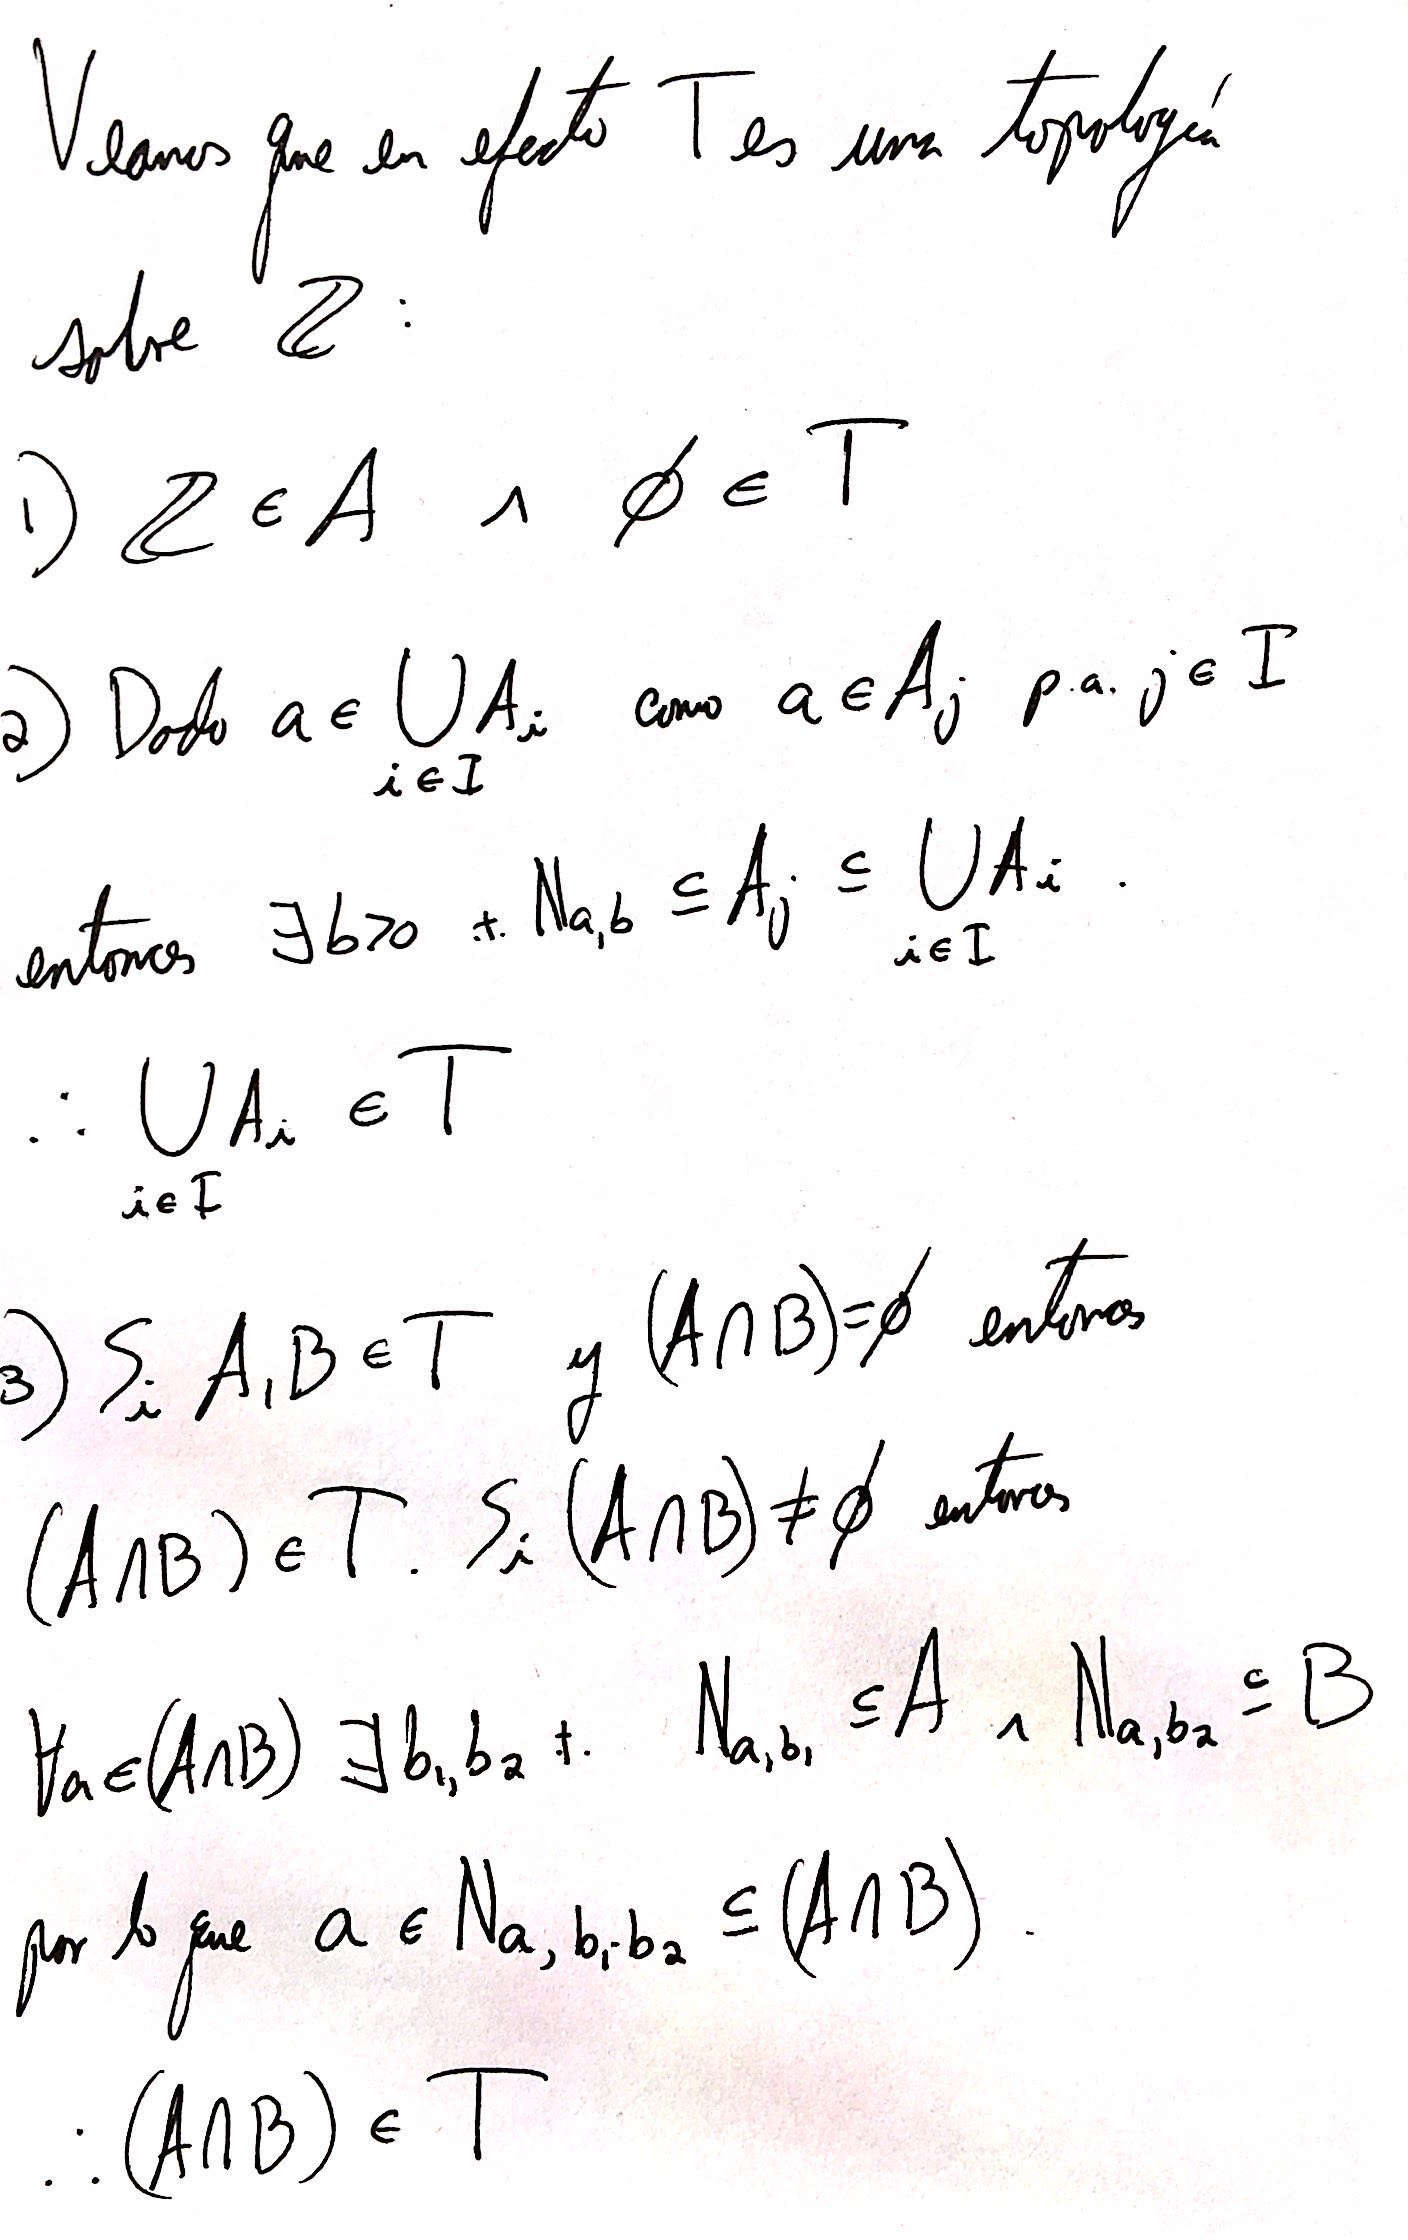 Veamos que en efecto T es una topología
sobre ℤ:
1) ℤ ∈ A ∧ ∅ ∈ T
2) Dado a ∈ ⋃_{i∈I} A_i como a ∈ A_j p.a. j ∈ I
entonces ∃ b>0 t. N_{a,b} ⊆ A_j ⊆ ⋃_{i∈I} A_i .
∴ ⋃_{i∈I} A_i ∈ T
3) Si A, B ∈ T y (A∩B)=∅ entonces
(A∩B) ∈ T. Si (A∩B) ≠ ∅ entonces
∀a∈(A∩B) ∃ b₁, b₂ t. N_{a,b₁} ⊆ A ∧ N_{a,b₂} ⊆ B
por lo que a ∈ N_{a, b₁·b₂} ⊆ (A∩B).
∴ (A∩B) ∈ T